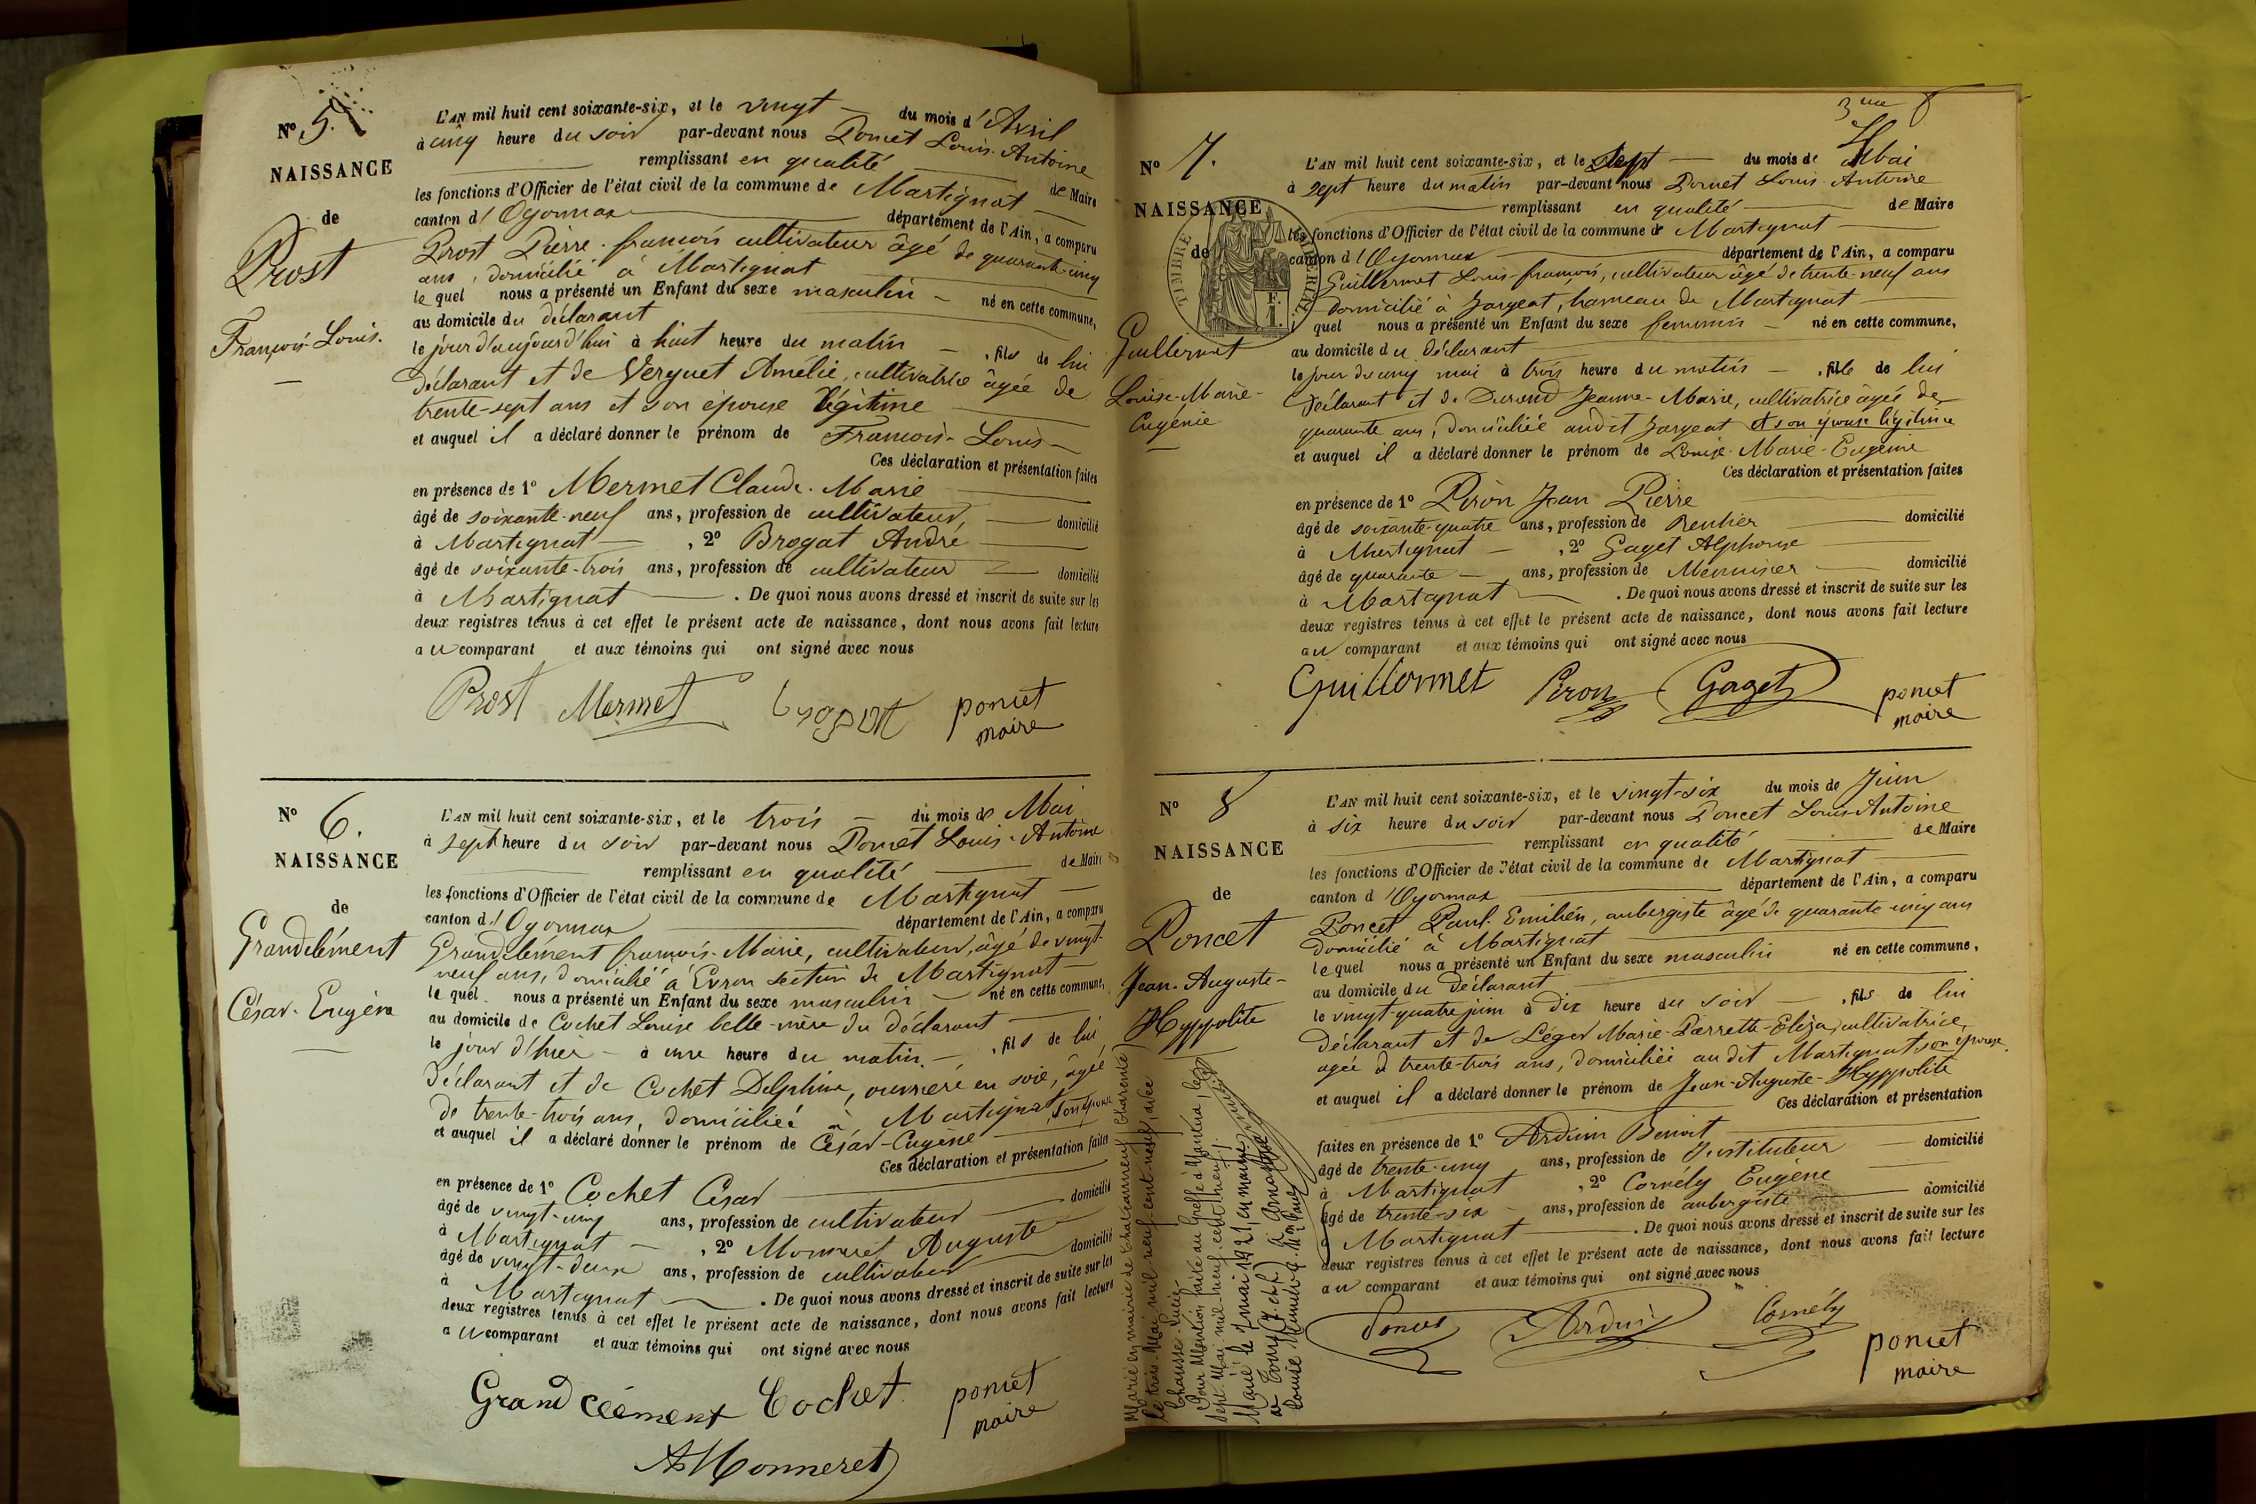 N° 5.
NAISSANCE
de
Prost
François-Louis.
L'AN mil huit cent soixante-six, et le vingt du mois d'Avril
à cinq heure du soir par-devant nous Poncet Louis-Antoine
remplissant en qualité de Maire
les fonctions d'Officier de l'état civil de la commune de Martignat
canton d'Oyonnax département de l'Ain, a comparu
Prost Pierre-françois cultivateur âgé de quarante-cinq
ans, domicilié à Martignat
le quel nous a présenté un Enfant du sexe masculin né en cette commune,
au domicile du déclarant
le jour d'aujourd'hui à huit heure du matin , fils de lui
déclarant et de Verguet Amélie, cultivatrice âgée de
trente-sept ans et son épouse légitime
et auquel il a déclaré donner le prénom de François-Louis
Ces déclaration et présentation faites
en présence de 1° Mermet Claude-Marie
âgé de soixante-neuf ans, profession de cultivateur, domicilié
à Martignat , 2° Brogat André
âgé de soixante-trois ans, profession de cultivateur domicilié
à Martignat . De quoi nous avons dressé et inscrit de suite sur les
deux registres tenus à cet effet le présent acte de naissance, dont nous avons fait lecture
au comparant et aux témoins qui ont signé avec nous
Prost Mermet brogat poncet
maire
N° 6.
NAISSANCE
de
Grandclément
César-Eugène
L'AN mil huit cent soixante-six, et le trois du mois de Mai
à sept heure du soir par-devant nous Poncet Louis-Antoine
remplissant en qualité de Maire
les fonctions d'Officier de l'état civil de la commune de Martignat
canton d'Oyonnax département de l'Ain, a comparu
Grandclément françois-Marie, cultivateur, âgé de vingt-
neuf ans, domicilié à Evron section de Martignat
le quel nous a présenté un Enfant du sexe masculin né en cette commune,
au domicile de Cochet Louise belle-mère du déclarant
le jour d'hier à une heure du matin , fils de lui
déclarant et de Cochet Delphine, ouvrière en soie, âgée
de trente-trois ans, domiciliée à Martignat, son épouse
et auquel il a déclaré donner le prénom de César-Eugène
Ces déclaration et présentation faites
en présence de 1° Cochet César
âgé de vingt-cinq ans, profession de cultivateur domicilié
à Martignat , 2° Monneret Auguste
âgé de vingt-deux ans, profession de cultivateur domicilié
à Martignat . De quoi nous avons dressé et inscrit de suite sur les
deux registres tenus à cet effet le présent acte de naissance, dont nous avons fait lecture
au comparant et aux témoins qui ont signé avec nous
Grandclément Cochet poncet
maire
A Monneret
3me
N° 7.
NAISSANCE
de
TIMBRE IMPERIAL
Guillermet
Louise-Marie-
Eugénie
L'AN mil huit cent soixante-six, et le sept du mois de Mai
à sept heure du matin par-devant nous Poncet Louis-Antoine
remplissant en qualité de Maire
les fonctions d'Officier de l'état civil de la commune de Martignat
canton d'Oyonnax département de l'Ain, a comparu
Guillermet Louis-françois, cultivateur âgé de trente-neuf ans
domicilié à Jargeat, hameau de Martignat
quel nous a présenté un Enfant du sexe feminin né en cette commune,
au domicile du déclarant
le jour du cinq mai à trois heure du matin , fille de lui
déclarant et de Durand Jeanne-Marie, cultivatrice âgée de
quarante ans, domiciliée audit Jargeat et son épouse légitime
et auquel il a déclaré donner le prénom de Louise-Marie-Eugénie
Ces déclaration et présentation faites
en présence de 1° Piron Jean Pierre
âgé de soixante-quatre ans, profession de Rentier domicilié
à Martignat , 2° Gaget Alphonse
âgé de quarante ans, profession de Menuisier domicilié
à Martignat . De quoi nous avons dressé et inscrit de suite sur les
deux registres tenus à cet effet le présent acte de naissance, dont nous avons fait lecture
au comparant et aux témoins qui ont signé avec nous
Guillermet Piron Gaget poncet
maire
N° 8
NAISSANCE
de
Poncet
Jean-Auguste-
Hyppolite
Marié en mairie de Chateauneuf Charente
le trois Mai mil neuf cent neuf, avec
Chausse Lucie
Pour Mention faite au Greffe à Nantua, le
sept Mai mil neuf cent neuf.
Marié le 7 mai 1921, en mairie
L'AN mil huit cent soixante-six, et le vingt-six du mois de Juin
à six heure du soir par-devant nous Poncet Louis-Antoine
remplissant en qualité de Maire
les fonctions d'Officier de l'état civil de la commune de Martignat
canton d'Oyonnax département de l'Ain, a comparu
Poncet Paul-Emilien, aubergiste âgé de quarante-cinq ans
domicilié à Martignat
le quel nous a présenté un Enfant du sexe masculin né en cette commune,
au domicile du déclarant
le vingt-quatre juin à dix heure du soir , fils de lui
déclarant et de Léger Marie-Pierrette-Eliza, cultivatrice,
agée d trente-trois ans, domiciliée au dit Martignat, son épouse
et auquel il a déclaré donner le prénom de Jean-Auguste-Hyppolite
Ces déclaration et présentation
faites en présence de 1° Arduin Benoit
âgé de trente-cinq ans, profession de Instituteur domicilié
à Martignat , 2° Cornély Eugène
âgé de trente-six ans, profession de aubergiste domicilié
à Martignat . De quoi nous avons dressé et inscrit de suite sur les
deux registres tenus à cet effet le présent acte de naissance, dont nous avons fait lecture
au comparant et aux témoins qui ont signé avec nous
Poncet Arduin Cornély
poncet
maire